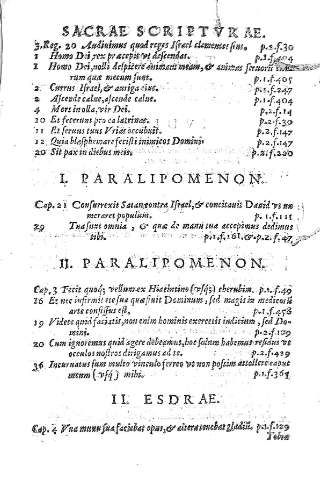 SACRAE SCRIPTURAE.
3. Reg. 20 Audiuimus quod reges Israel clementes sint. p.2.f.30
1 Homo Dei, rex praecepit vt descendat. p.1.f.404
1 Homo Dei, noli despicere animam meam, & animas seruorum
rum quae mecum sunt. p.1.f.405
2 Currus Israel, & auriga eius. p.1.f.247
2 Ascende calue, ascende calue. p.1.f.404
4 Mors in olla, vir Dei. p.2.f.14
10 Et fecerunt pro ea latrinas. p.2.f.30
11 Et seruus tuus Vrias occubuit. p.2.f.147
12 Quia blasphemare fecisti inimicos Domini. p.2.f.147
20 Sit pax in diebus meis. p.2.f.200
I. PARALIPOMENON.
Cap. 21 Consurrexit Satan contra Israel, & concitauit Dauid vt nu
meraret populum. p.1.f.111
29 Tua sunt omnia, & quae de manu tua accepimus dedimus
tibi. p.1.f.161. & p.2.f.47
II. PARALIPOMENON.
Cap. 3 Fecit quoq; vellum ex Hiacintino (vsq;) cherubim. p.1.f.49
16 Et nec infirmitate sua quaesiuit Dominum, sed magis in medicorū
arte confisus est. p.1.f.456
19 Videte quid faciatis, non enim hominis exercetis iudicium, sed Do-
mini. p.2.f.129
20 Cum ignoremus quid agere debeamus, hoc solum habemus residui vt
occulos nostros dirigamus ad te. p.2.f.429
36 Incuruatus sum multo vinculo ferreo vt non possim attollere caput
meum (vsq;) mihi. p.1.f.361
II. ESDRAE.
Cap. 4 Vna manu sua faciebat opus, & altera tenebat gladiū. p.1.f.129
Tobiae